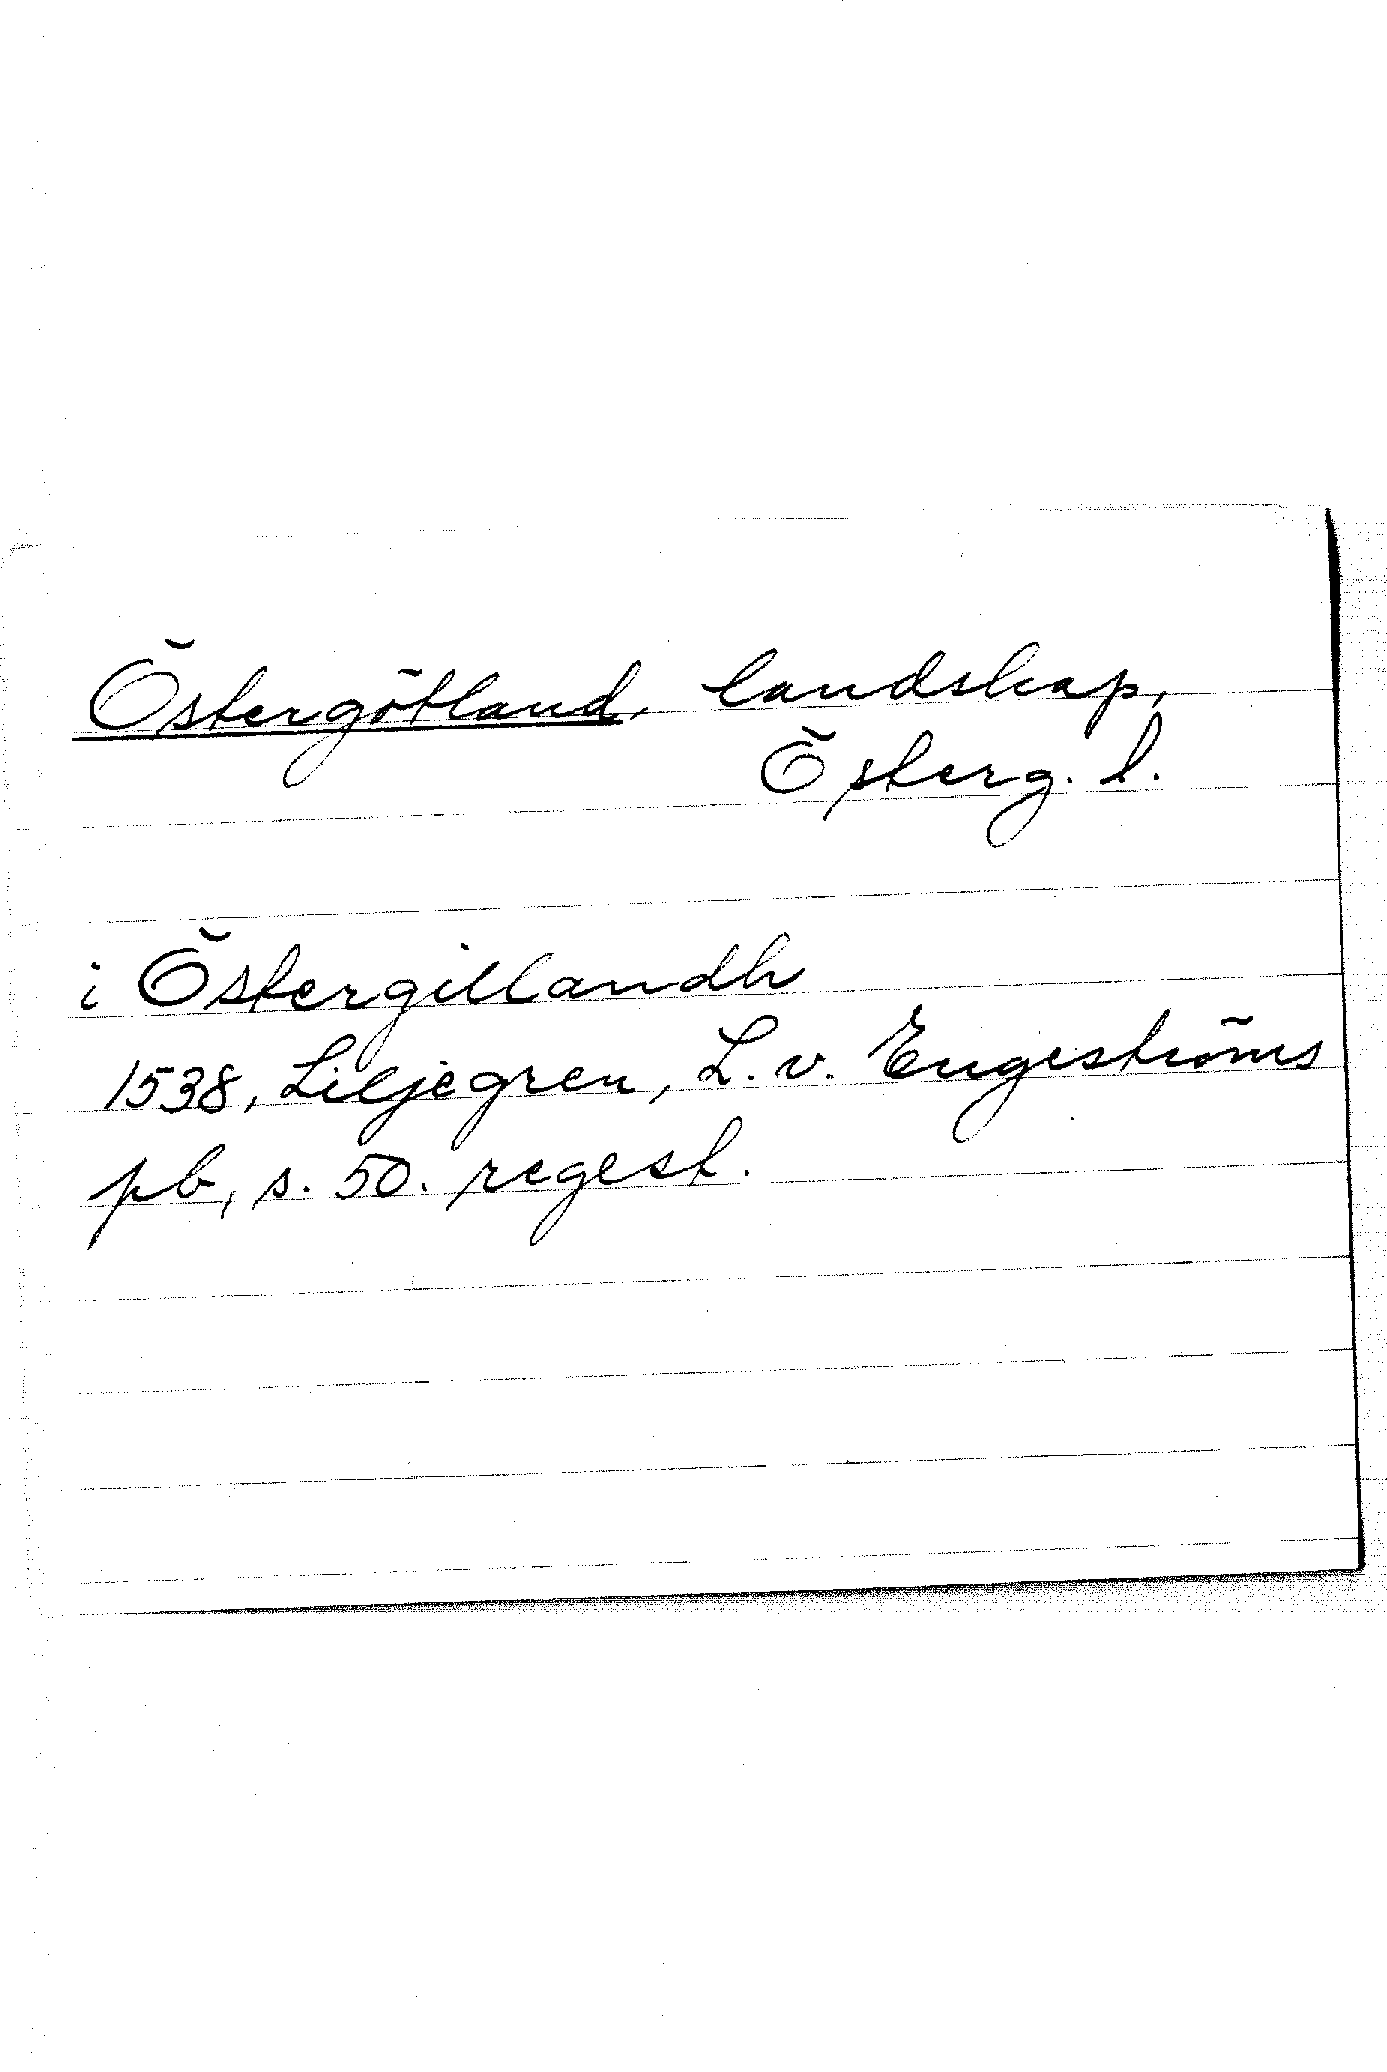 Östergötland, landskap,
Österg. l.
i Östergillandh
1538, Liljegren, L. v. Engeströms
pb, s. 50. regest.